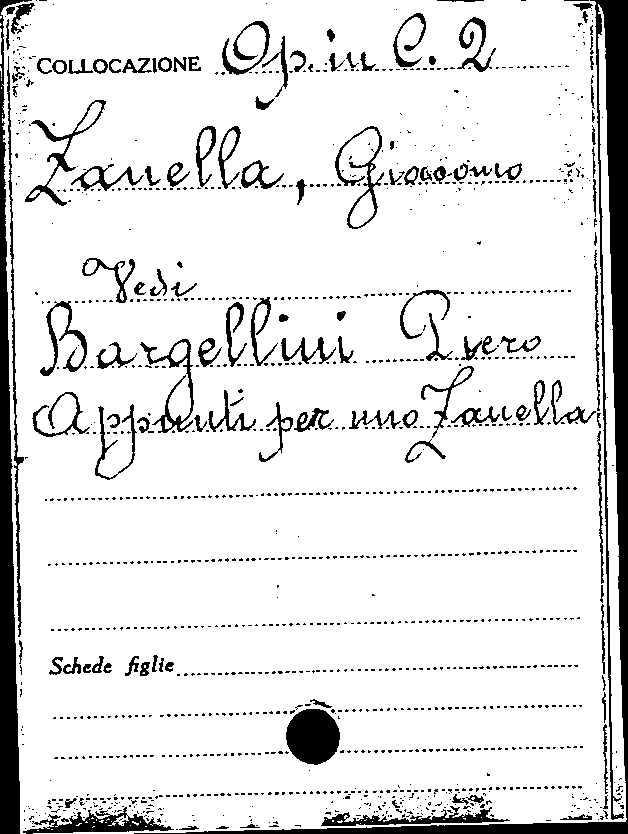 COLLOCAZIONE Op. in C. 2
Zanella, Giacomo
Vedi
Bargellini Piero
Appunti per uno Zanella
Schede figlie